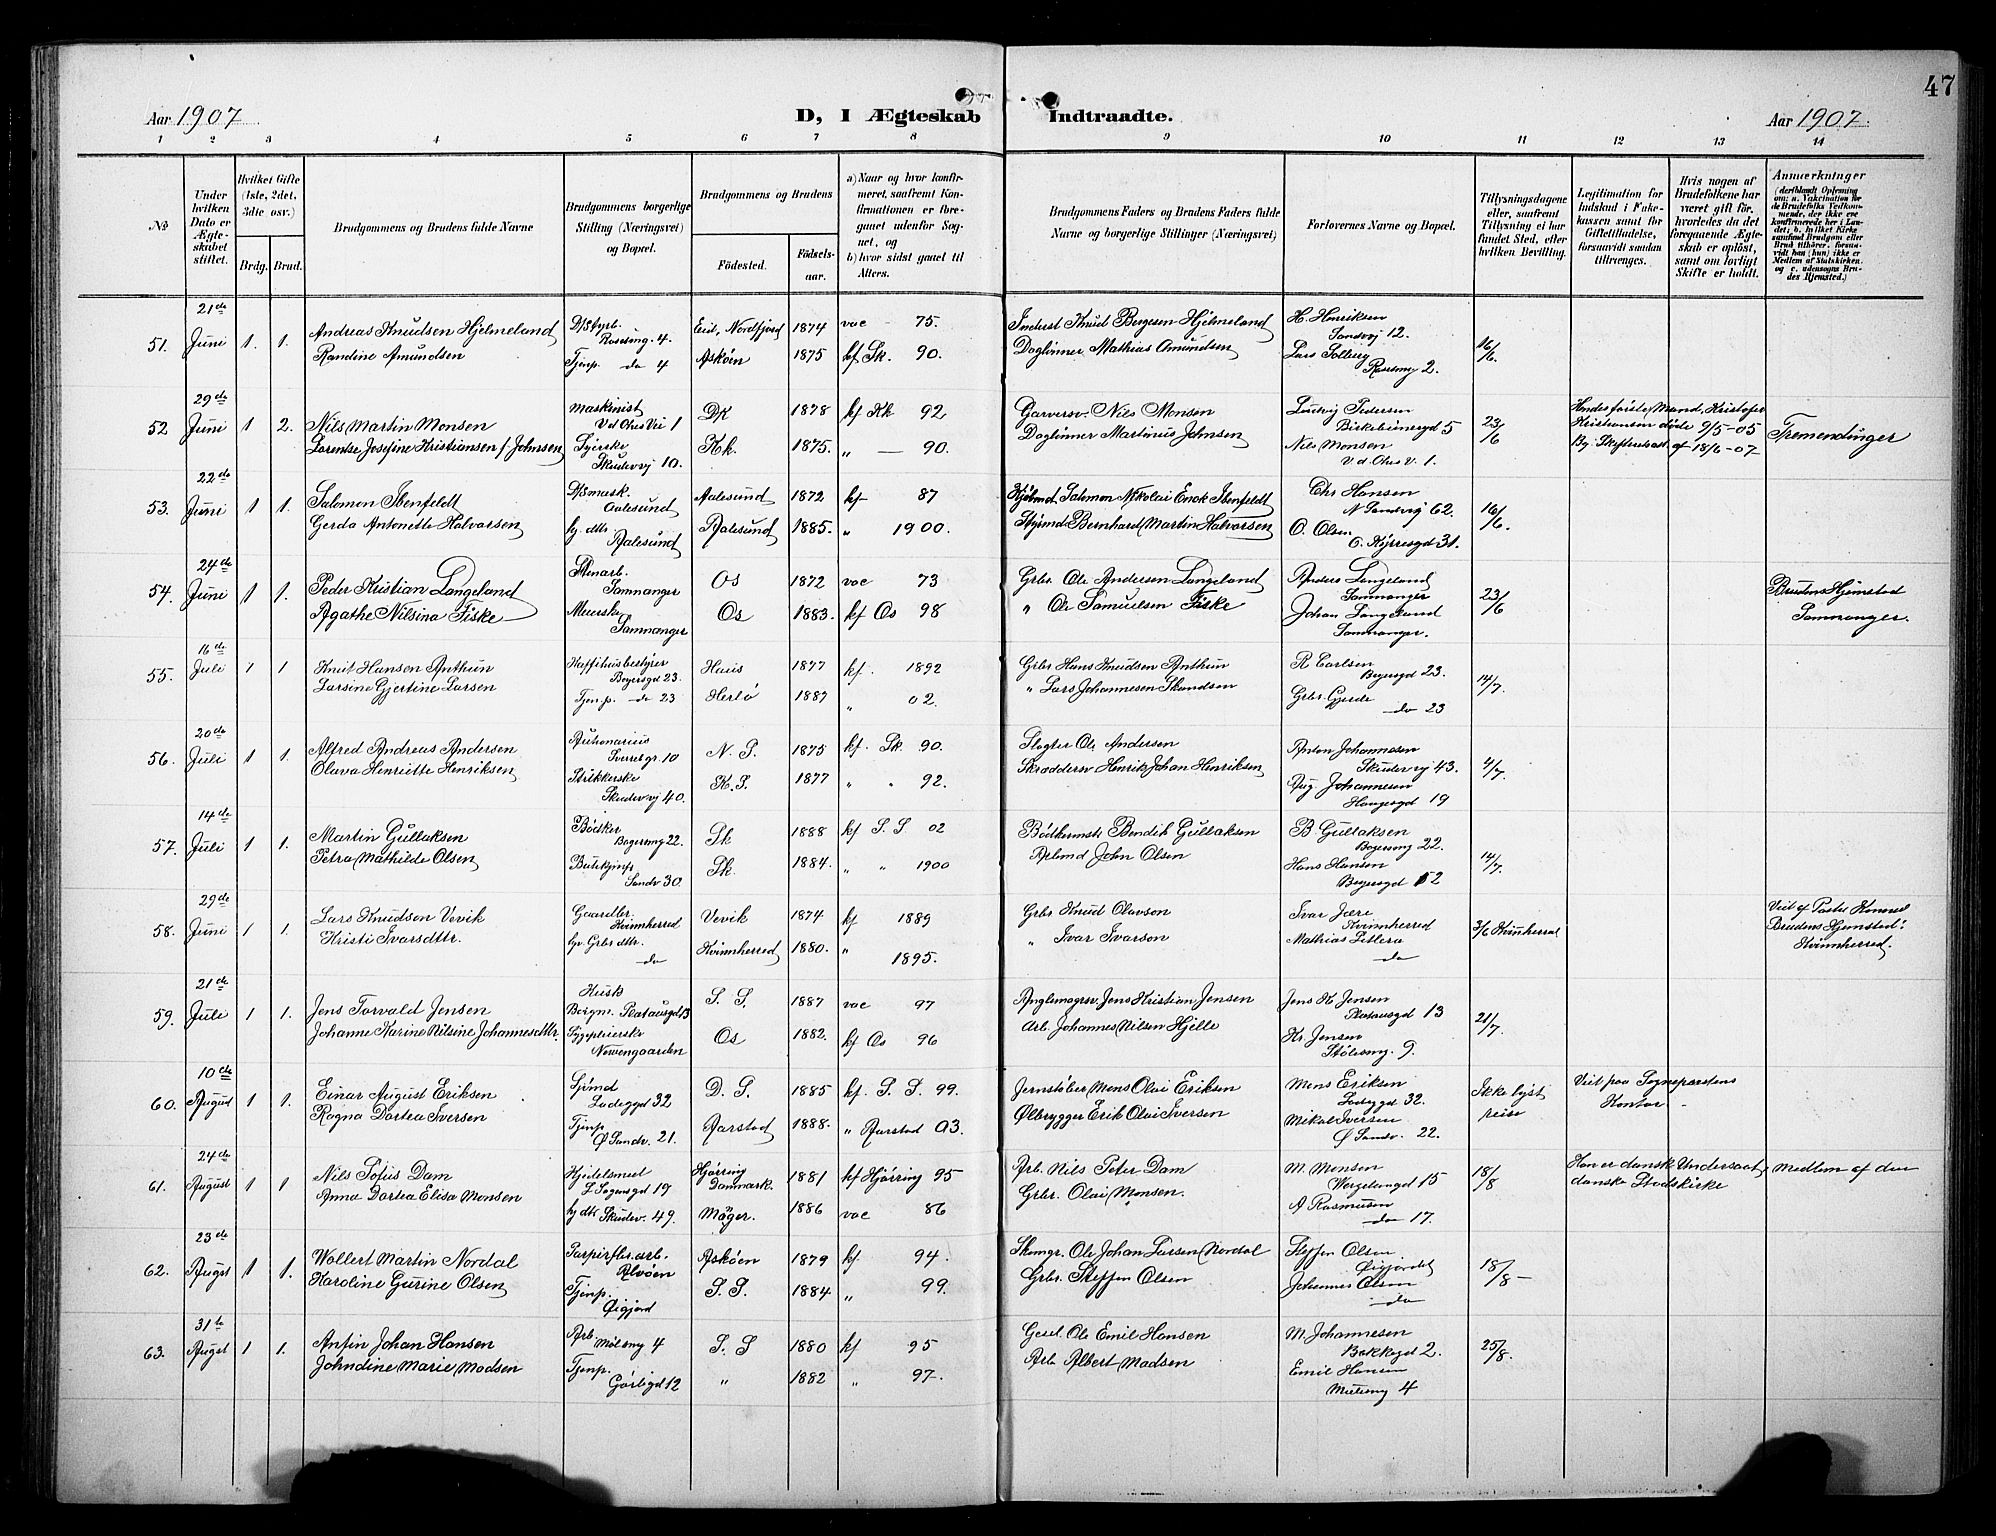 47
Aar 1907
D, I Ægteskab Indtraadte.
Aar 1907.
1 2 3 4 5 6 7 8 9 10 11 12 13 14
№
Under hvilken Dato er Ægteskabet stiftet.
Hvilket Gifte (1ste, 2det, 3die osv.)
Brdg. Brud.
Brudgommens og Brudens fulde Navne
Brudgommens borgerlige Stilling (Næringsvei) og Bopæl.
Brudgommens og Brudens
Fødested.
Fødselsaar.
a) Naar og hvor konfirmeret, saafremt Konfirmationen er foregaaet udenfor Sognet, og
b) hvor sidst gaaet til Alters.
Brudgommens Faders og Brudens Faders fulde Navne og borgerlige Stillinger (Næringsvei)
Forlovernes Navne og Bopæl.
Tillysningsdagene eller, saafremt Tillysning ei har fundet Sted, efter hvilken Bevilling.
Legitimation for Indskud i Enkekassen samt for Giftetilladelse, forsaavidt saadan tiltrænges.
Hvis nogen af Brudefolkene har været gift før, hvorledes da det foregaaende Ægteskab er opløst, samt om lovligt Skifte er holdt.
Anmærkninger
51. 21de Juni 1. 1.
Andreas Knudsen Hjelmeland Eid, Nordfjord 1874 vac 75.
Randine Amundsen Tjenp. do 4 Askøen 1875 kf Sk. 90.
Inderst Knud Bergesen Hjelmeland
Daglønner Mathias Amundsen
H. Henriksen Sandvij 12.
Lars Solberg 2.
16/6.
52 29de Juni 1 2.
Nils Martin Monsen Maskinist V d Ohis Vei 1 DK 1878 kf Kk 92
Lorentse Josefine Kristiansen f. Johnsen Syerske Skudevvj 10. Kk. 1875. „ 90.
Garversv. Nils Monsen
Dagløner Martinus Johnsen
Ludvig Pedersen Birkebeinersgd 5
Nils Monsen V. d. Ohis V. 1.
23/6
Hendes første Mand, Kristofer Kristiansen døde 9/5-05
By. Skifteattest af 18/6-07
Fremendinger
53. 22de Juni 1 1.
Salomon Ibenfeldt Aalesund Aalesund 1872 kf 87
Gerda Antonette Halvorsen hj. dttr. Aalesund Aalesund 1885. „ 1900.
Salomon Nikolai Enok Ibenfeldt
Styrmd Bernhard Martin Halvorsen
Chr Hansen N Sandvij 62.
O. Olsen O. Kyrresgd 31.
16/6.
54. 24de Juni 1 1.
Peder Kristian Langeland Stenarb. Samnanger Os 1872 vac 73
Agathe Nilsina Fiske Meierske Samnanger Os 1883. kf Os 98
Grbr. Ole Andersen Langeland
„ Ole Samuelsen Fiske
Anders Langeland Samnanger
Johan Langeland Samnanger.
23/6
Brudens Hjemsted Samnanger.
55. 16de Juli 1 1
Knut Hansen Anthun Kaffihusbestyrer Bøgersgd 23. Haus 1877 kf. 1892
Larsine Gjertine Larsen Tjenp. do 23 Herlø 1887 „ 02.
Grbr Hans Knudsen Anthun
„ Lars Johannesen Skandsen
R. Carlsen 23.
Grbr. Gjerde do 23
14/7.
56. 20de Juli 1 1.
Alfred Andreas Andersen Auktionarius Sverresgr. 10 N. P. 1875 kf. Sk. 90.
Olava Henriette Henriksen Strikkerske Skudevvj 40. K. S. 1877 „ „ 92.
Slagter Ole Andersen
Skræddersv Henrik Johan Henriksen
Anton Johannesen Skudevvj 43.
Aug. Johannesen Haugesgd 19
4/7.
57. 14de Juli 1 1.
Martin Gullaksen Bødker 22. Sk 1888 kf S. S. 02
Petra Mathilde Olsen Sandv 30. Sk. 1884. „ „ 1900
Bødkermstr. Bendik Gullaksen
Arbmd John Olsen
B. Gullaksen 22.
Hans Hansen 52
14/7.
58. 29de Juni 1 1.
Lars Knudsen Vevik Gaardbr. Kvinnherred Vevik 1874 kf 1889
Kristi Ivarsdttr. hv. Grbr dttr. do Kvinnherred 1880. „ 1895.
Grbr Knud Olavson
„ Ivar Ivarson
Ivar Jære Kvinnherred
Mathias Sellera do
3/6 Kvinherred
Brudens Hjemsted: Kvinnherred.
59. 21de Juli 1 1.
Jens Torvald Jensen S. S. 1887 vac 97
Johanne Karine Nilsine Johannesdttr. Sygepleierske Os 1882. kf Os 96
Jens Kristian Jensen
Arb. Johannes Nilsen Hjelle
Jens Kr Jensen 13
Kr. Jensen Stølesmg. 9.
21/7.
60. 10de August 1 1.
Einar August Eriksen Sjømd Ladeggd 32 D. S. 1885 kf. S. S. 99.
Ragna Dortea Iversen Tjenp Ø Sandv. 21. Aarstad 1888. „ Aarstad 03.
Jernstøber Mons Olai Eriksen
Ølbrygger Erik Olai Iversen
Mons Eriksen Ladeggd 32.
Mikal Iversen Ø Sandv. 22.
Ikke lyst reise
Viet paa Sogneprestens Kontor
61. 24de August 1 1
Nils Sofus Dam Kjedelsmed 19 Hjørring Danmark. 1881 kf Hjørring 95
Anna Dortea Elisa Monsen hj dtr. Skudev. 49. Møger. 1886 vac 86
Arb. Nils Peter Dam
Grbr. Olai Monsen.
M. Monsen Wergelandgd 15
A Rasmusen do 17.
18/8
Han er dansk Undersaat, Medlem af den danske Statskirke
62. 23de Augst 1 1.
Wollert Martin Nordal Papirfbr. arb. Alvøen Askøen 1879 kf 94.
Karoline Gurine Olsen Tjenp. S. S. 1884 „ 99.
Skomgr. Ole Johan Larsen Nordal
Grbr. Steffen Olsen
Steffen Olsen
Johannes Olsen do
18/8
63. 31te Augst 1 1.
Anfin Johan Hansen Arb. 4 S. S 1880 kf 95
Johndine Marie Madsen Tjenp. 12 „ 1882 „ 97.
Gesel. Ole Emil Hansen
Arb. Albert Madsen
M. Johannesen Bakkegd 2.
Emil Hansen 4
25/8.